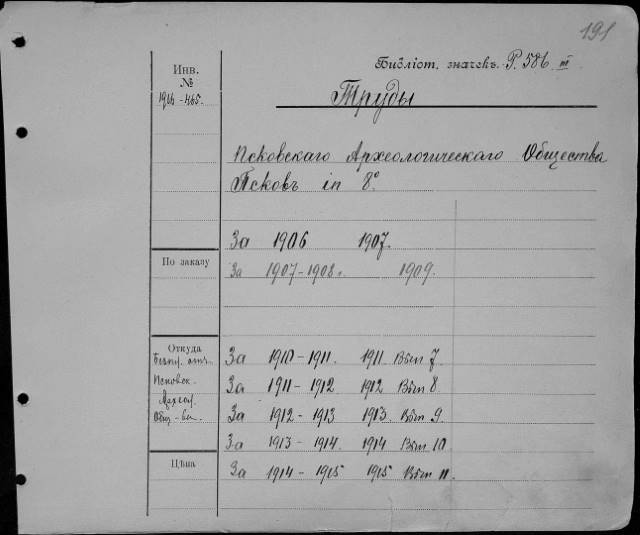 191
Библіот. значекъ P. 586 III
Инв.
№
1916-465.
Труды
Псковскаго Археологическаго Общества
Псковъ in 8°
За 1906 1907.
По заказу
За 1907-1908. 1909.
Откуда
Безпл. отъ
Псковск.
Археол.
Общ-ва.
За 1910-1911. 1911 Вып 7
За 1911-1912 1912 Вып 8.
За 1912-1913 1913. Вып 9.
За 1913-1914. 1914 Вып 10
Цѣна
За 1914-1915 1915 Вып 11.